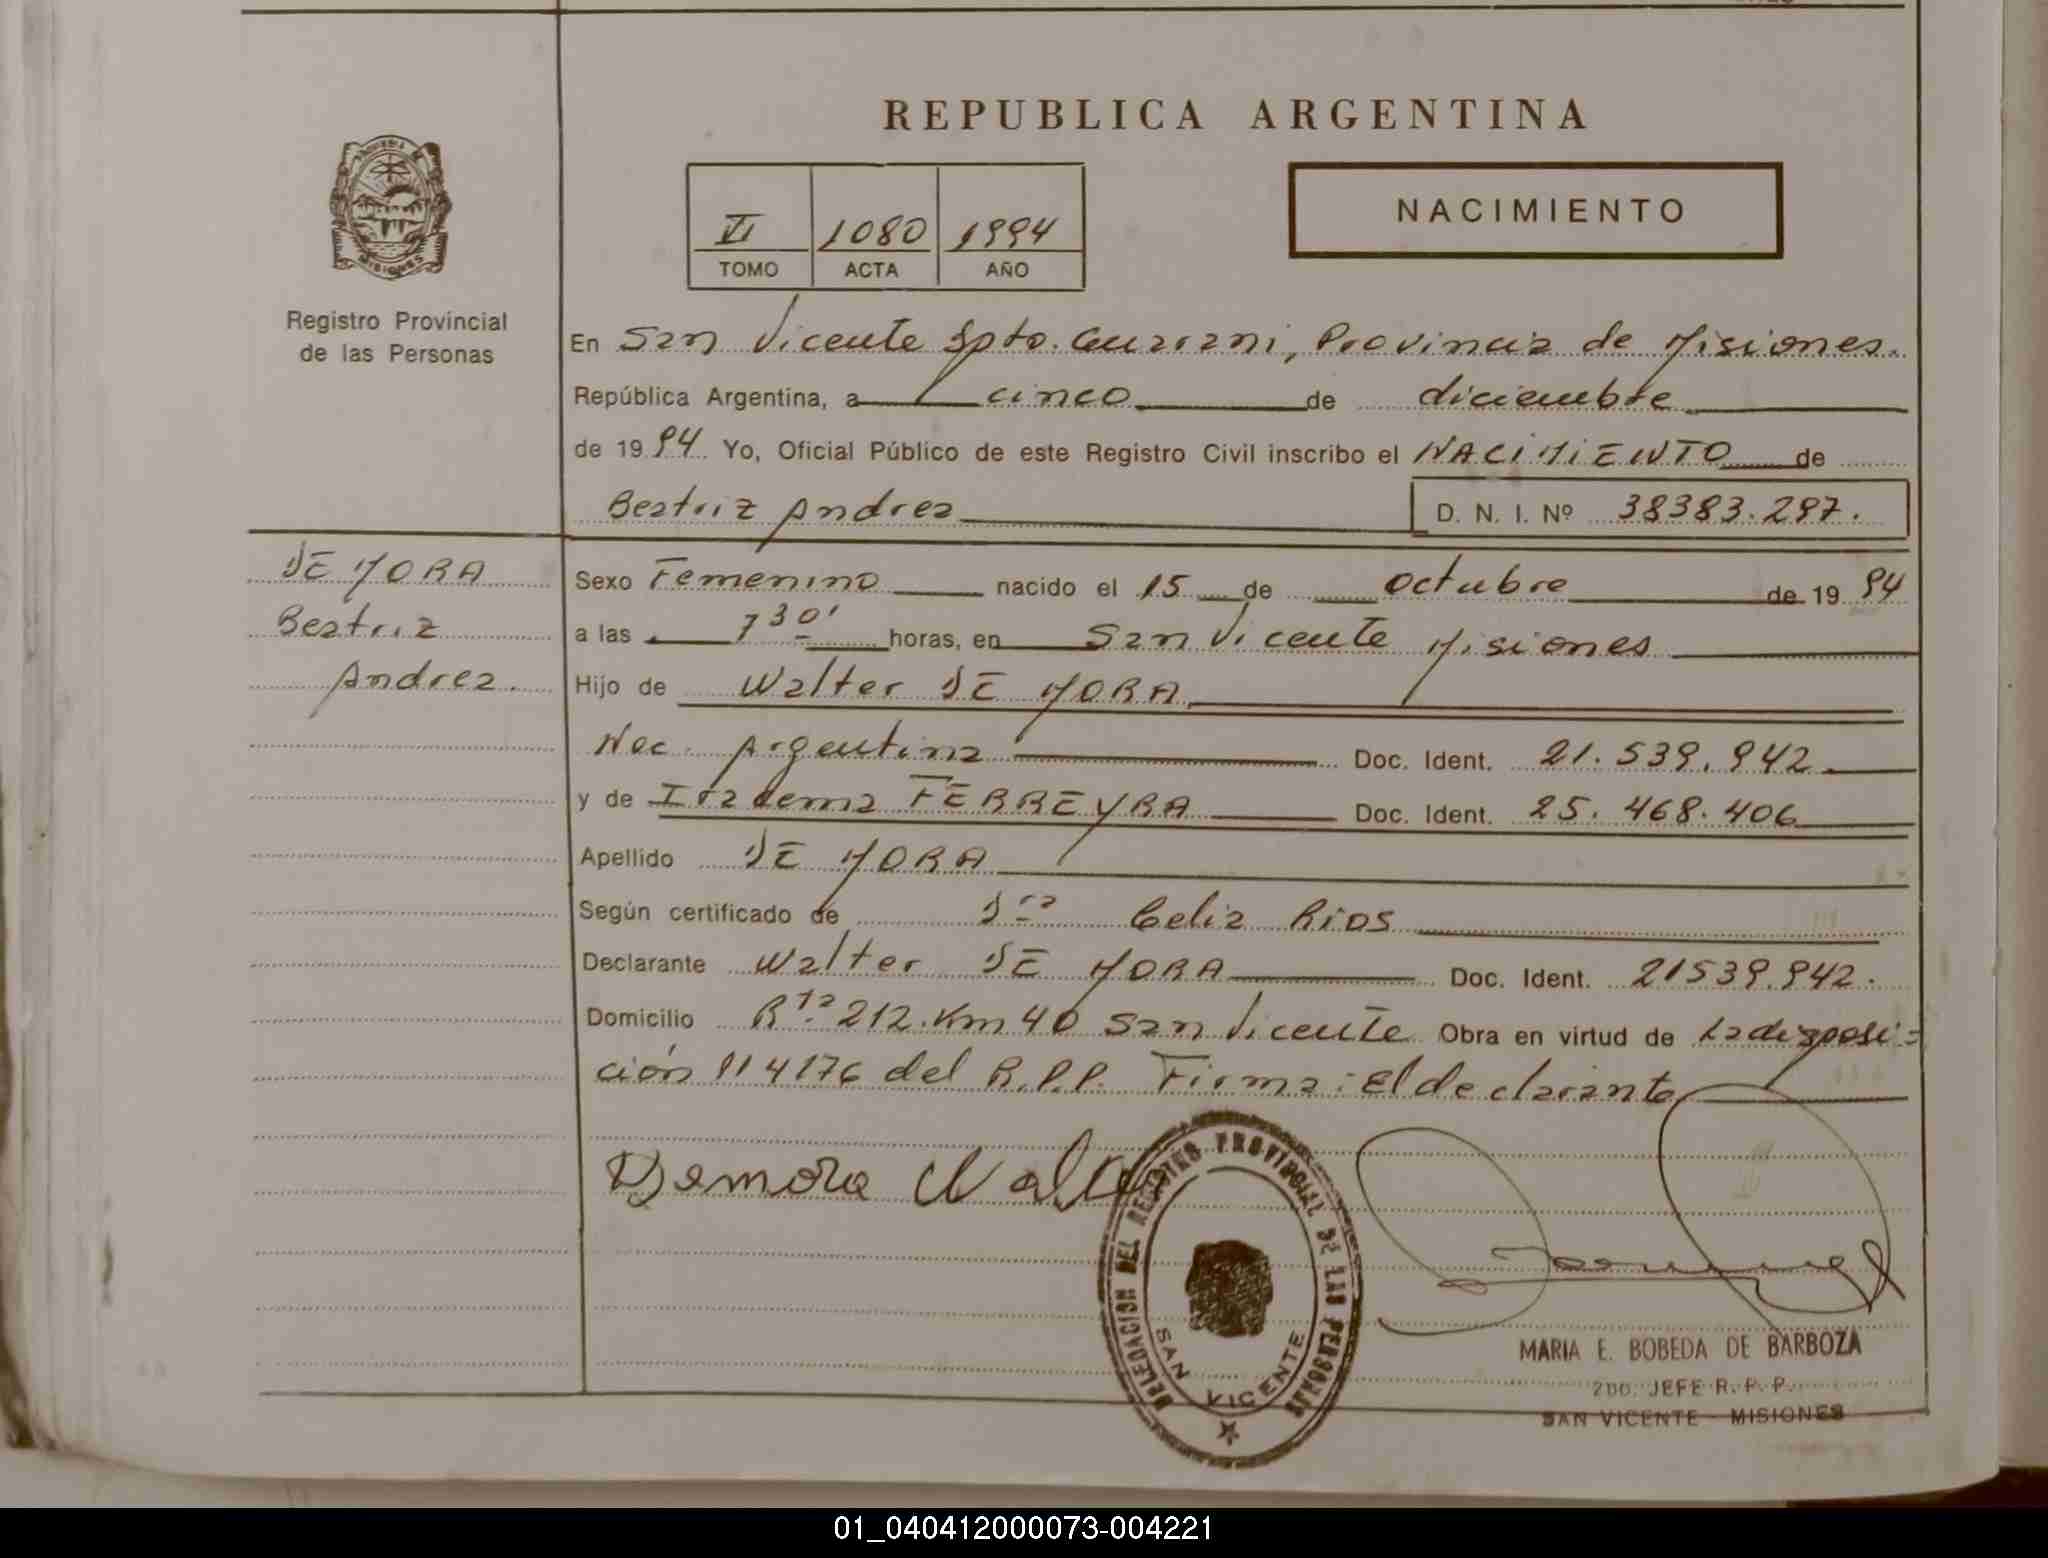 REPUBLICA ARGENTINA
MISIONES
Registro Provincial
de las Personas
VI 1080 1994
TOMO ACTA AÑO
NACIMIENTO
En San Vicente Dpto. Guarani, Provincia de Misiones.
República Argentina, a cinco de diciembre
de 19 94 Yo, Oficial Público de este Registro Civil inscribo el NACIMIENTO de
Beatriz Andrea D. N. I. Nº 38383.297.
DE MORA
Beatriz
Andrea.
Sexo Femenino nacido el 15 de octubre de 19 94
a las 7 30' horas, en San Vicente Misiones
Hijo de Walter DE MORA
Nac. Argentina Doc. Ident. 21.539.942
y de Iracema FERREYRA Doc. Ident. 25.468.406
Apellido DE MORA
Según certificado de Dra Celia Rios
Declarante Walter DE MORA Doc. Ident. 21539.942.
Domicilio Rta 212. Km 40 San Vicente Obra en virtud de La disposi=
ción 114176 del R.P.P. Firma: El declarante
Demora Walter
DELEGACION DEL REGISTRO PROVINCIAL DE LAS PERSONAS
SAN VICENTE
MARIA E. BOBEDA DE BARBOZA
2do. JEFE R. P. P.
SAN VICENTE - MISIONES
01_040412000073-004221